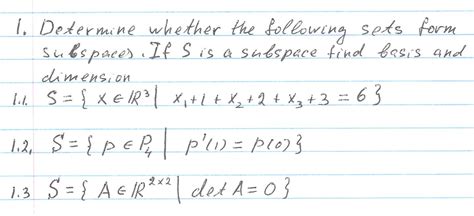 1. Determine whether the following sets form
subspaces. If S is a subspace find basis and
dimension
1.1. S = { x ∈ ℝ³ | x₁+1 + x₂+2 + x₃+3 = 6 }
1.2. S = { p ∈ P₄ | p'(1) = p(0) }
1.3 S = { A ∈ ℝ²ˣ² | det A = 0 }